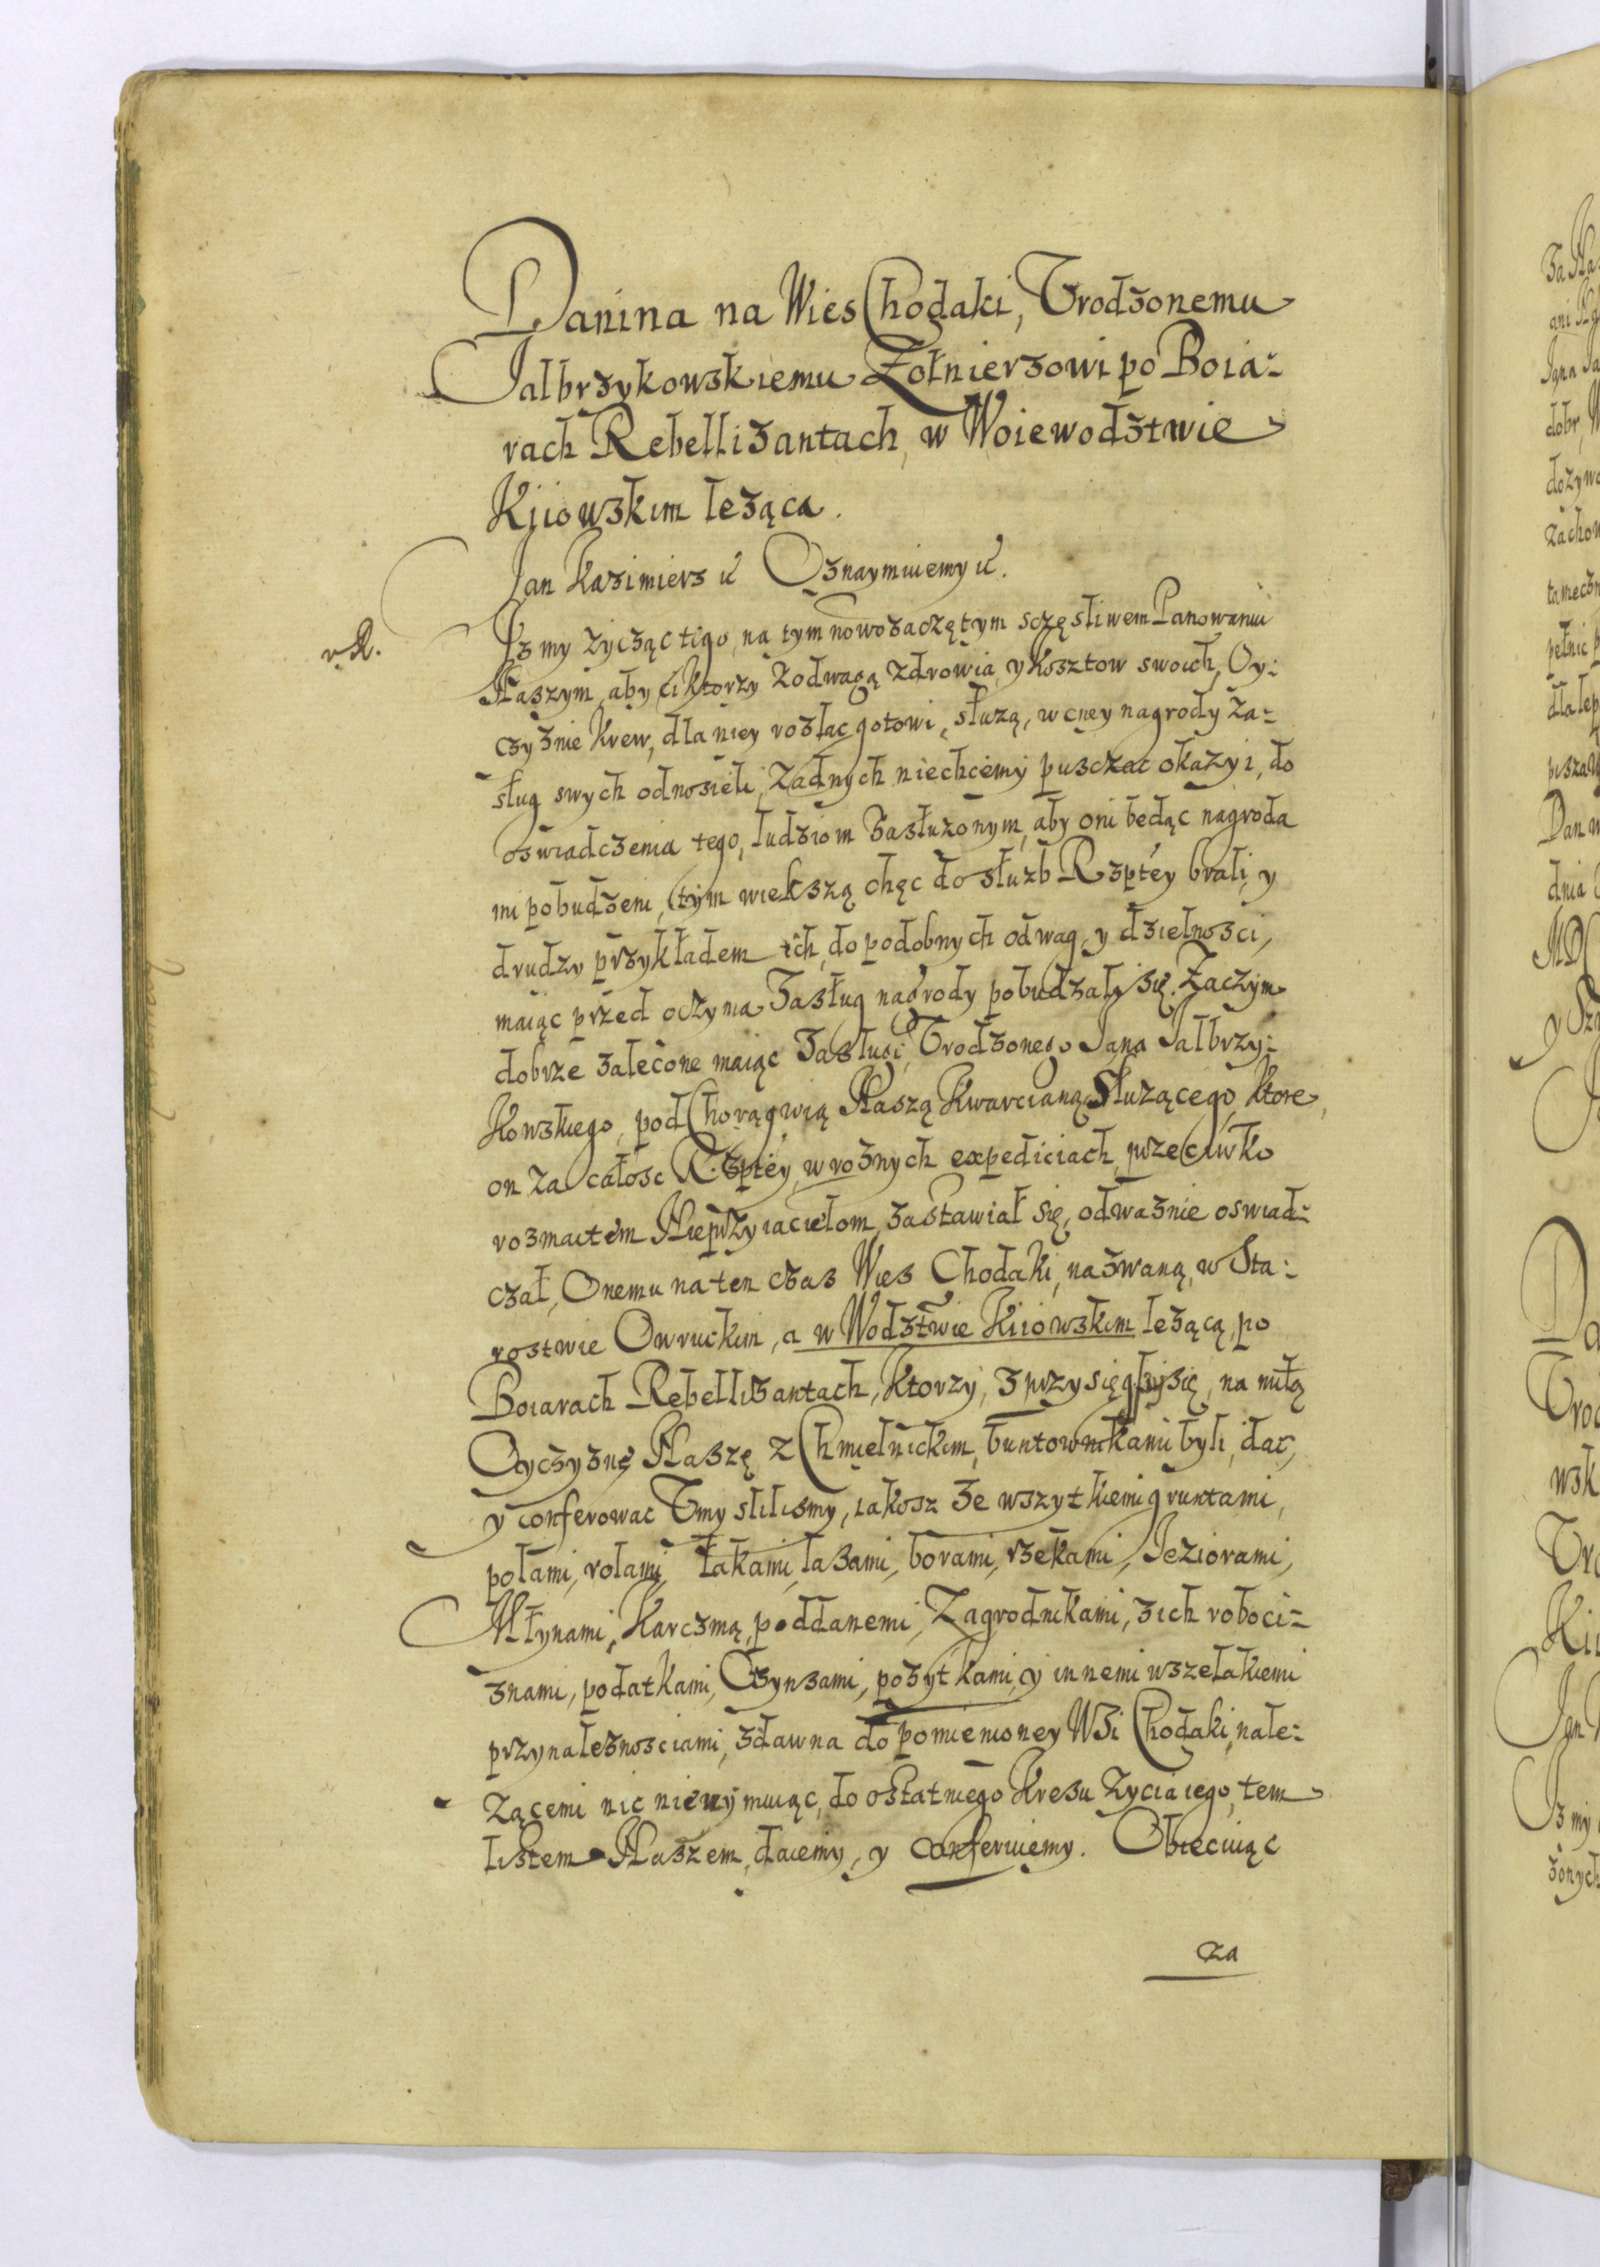 Danina na Wies Chodaki, Vrodzonemu
Jalbrzykowskiemu Zołnierzowi po Boia-
rach Rebellizantach, w Woiewodztwie
Kijowskim leząca.
Jan Kazimierz &c Oznaymuiemy &c.
Iz my zycząc tego, na tym nowo zaczętym sczęsliwem Panowaniu
Naszym, aby ci ktorzy z odwagą zdrowia, y kosztow swoich, Oy-
czyznie krew, dla niey rozlac gotowi, słuzą, w cney nagrody za-
sług swych odnosieli, zadnych niechcemy pusczac okazyi, do
oswiadczenia tego, ludziom zasłuzonym, aby oni będąc nagroda
mi pobudzeni, tym wiekszą chęc do słuzb Rzptey brali, y
drudzy przykładem ich, do podobnych odwag, y dzielnosci,
maiąc przed oczyma zasług nagrody pobudzali się. Zaczym
dobrze zalecone maiąc zasługi, Vrodzonego Jana Jalbrzy-
kowskiego, pod Chorągwią Naszą Kwarcianą Słuzącego, ktore,
on za całosc Rzptey, w roznych expediciach, przeciwko
rozmaitem Nieprzyiacielom, zastawiał się, odwaznie oswiad-
czał, Onemu na ten czas Wies Chodaki, nazwaną, w Sta-
rostwie Owruckim, a w Wodztwie Kiiowskim lezącą, po
Boiarach Rebellizantach, ktorzy, zprzysięgszy się, na miłą
Oyczyznę Naszę z Chmielnickim, buntownikami byli, dac,
y conferowac Vmyslilismy, iakosz ze wszytkiemi gruntami,
polami, rolami, łakami, lasami, borami, rzekami, Ieziorami,
Młynami, Karczmą, poddanemi, Zagrodnikami, z ich roboci-
znami, podatkami, Czynszami, pozytkami, y innemi wszelakiemi
przynaleznosciami, zdawna do pomienioney Wsi Chodaki, nale-
zącemi nic nie wymuiąc, do ostatniego kresu zycia iego, tem
listem Naszem, daiemy, y conferuiemy. Obiecuiąc
za